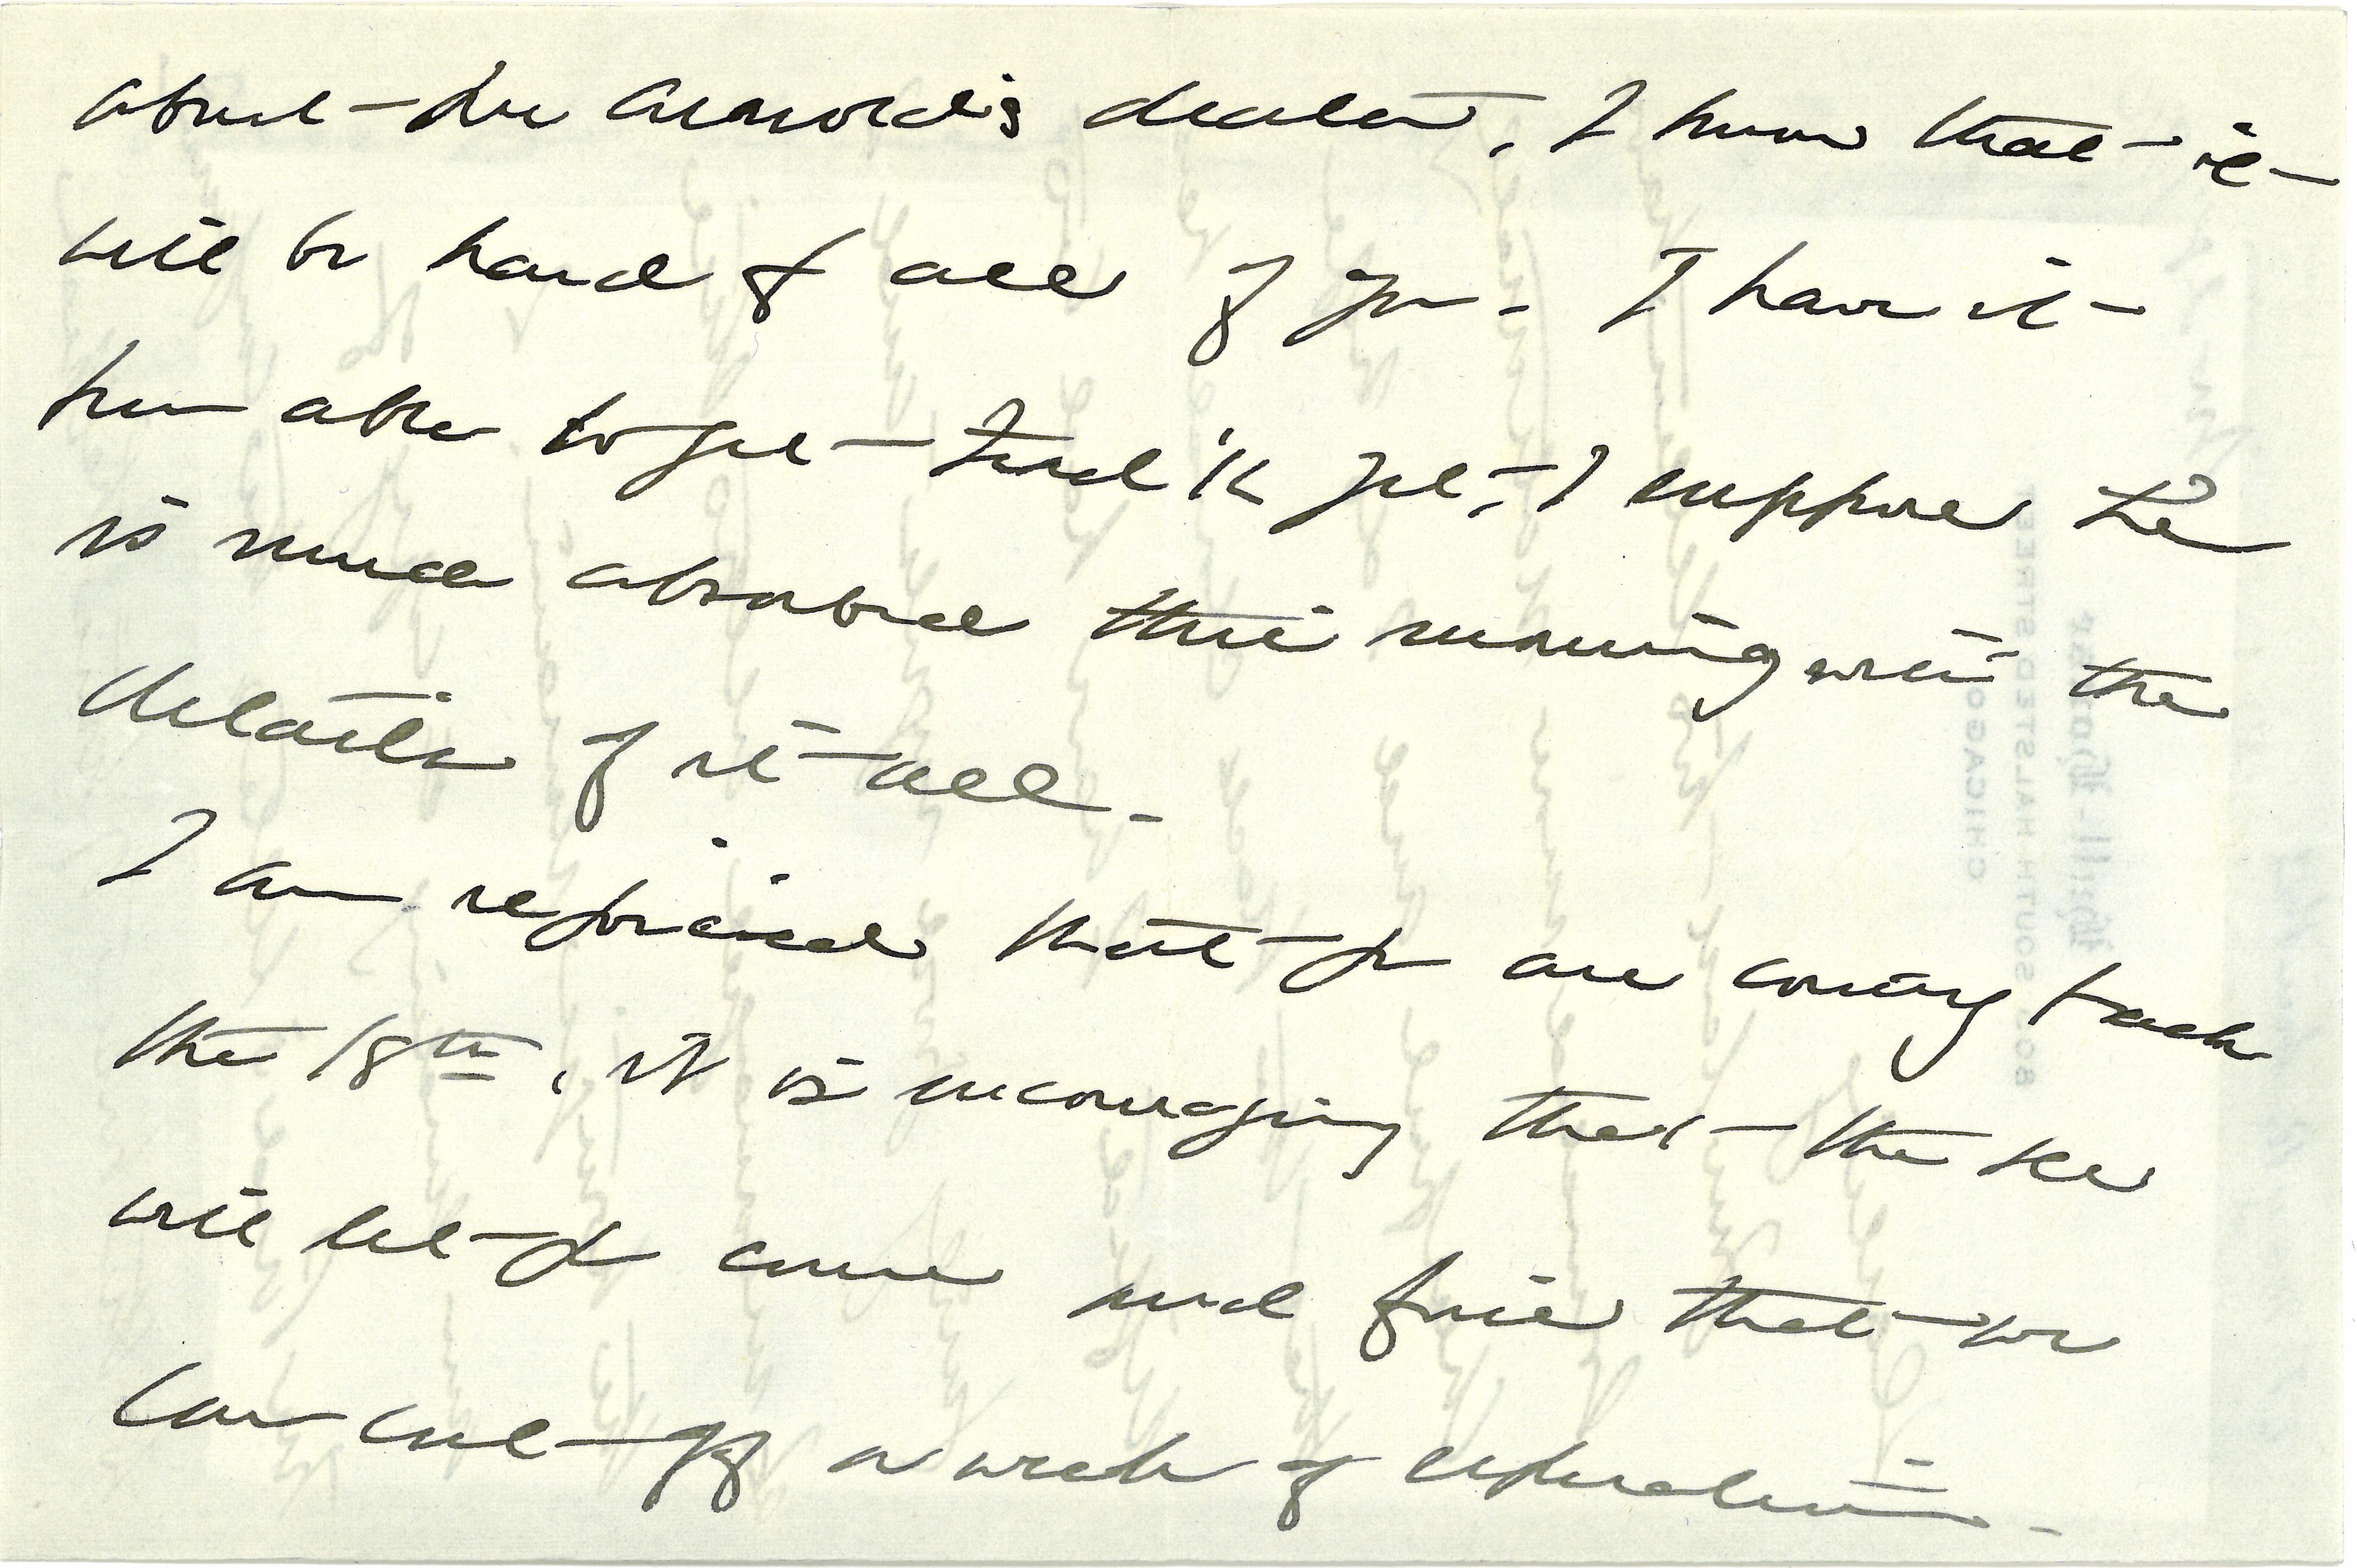 about Mr Arnold's death, I know that it
will be hard for all of you. I have n't
been able to get Fred 'k yet, I suppose he
is much absorbed this morning with the
details of it all.
I am rejoiced that you are coming back
the 18th, it is encouraging that the
will let you come and fine that we
can cut off a week of separation.
CHICAGO
SOUTH HALSTED STREET